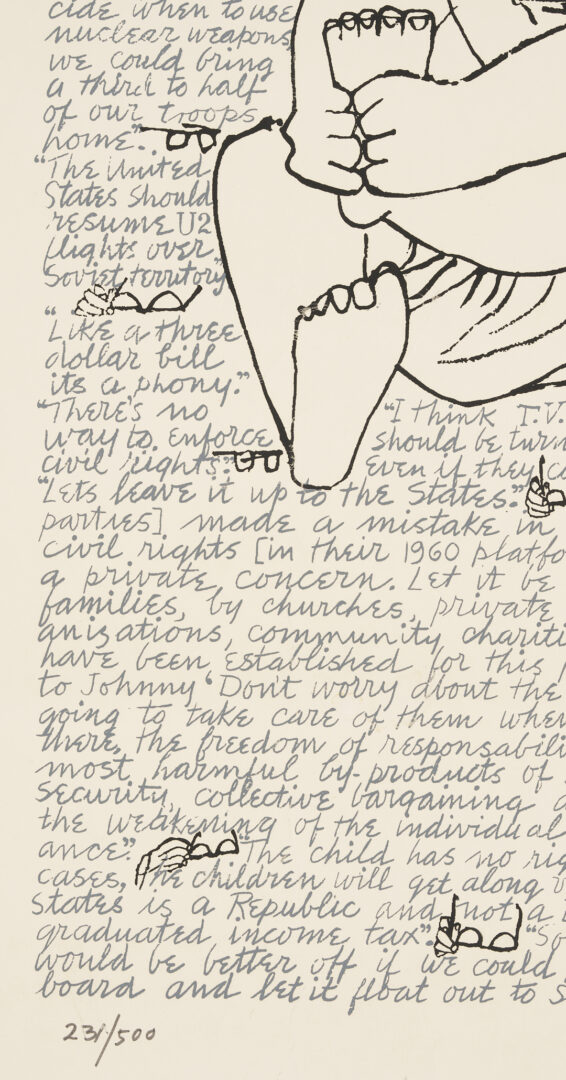 cide when to use
nuclear weapons,
we could bring
a third to half
of our troops
home".
"The United
States should
resume U2
flights over
Soviet territory"
"Like a three
dollar bill
its a phony."
"There's no
way to enforce
civil rights".
"I think T.V.
should be turn
even if they c
"Lets leave it up to the States."
parties] made a mistake in
civil rights [in their 1960 platfo
a private concern. Let it be
families, by churches, private
anizations, community chariti
have been established for this
to Johnny 'Don't worry about the
going to take care of them when
there, the freedom of responsabili
most harmful by-products of
security, collective bargaining a
the weakening of the individual
ance". "The child has no rig
cases, the children will get along
States is a Republic and not a
graduated income tax". "So
would be better off if we could
board and let it float out to s
231/500